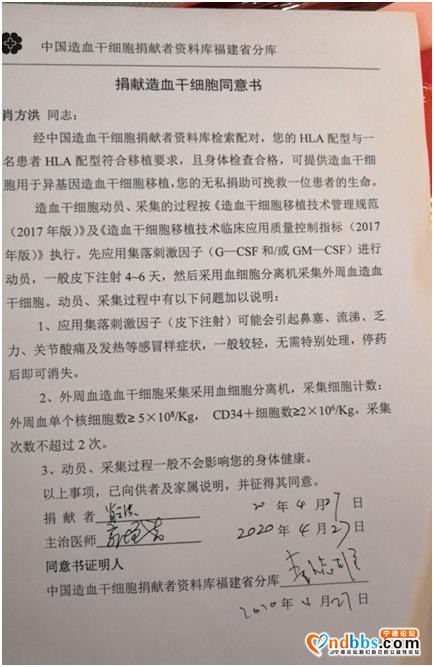 中国造血干细胞捐献者资料库福建省分库
捐献造血干细胞同意书
肖方洪 同志：
经中国造血干细胞捐献者资料库检索配对，您的 HLA 配型与一
名患者 HLA 配型符合移植要求，且身体检查合格，可提供造血干细
胞用于异基因造血干细胞移植，您的无私捐助可挽救一位患者的生命。
造血干细胞动员、采集的过程按《造血干细胞移植技术管理规范
（2017 年版）》及《造血干细胞移植技术临床应用质量控制指标（2017
年版）》执行。先应用集落刺激因子（G—CSF 和/或 GM—CSF）进行
动员，一般皮下注射 4~6 天，然后采用血细胞分离机采集外周血造血
干细胞。动员、采集过程中有以下问题加以说明：
1、应用集落刺激因子（皮下注射）可能会引起鼻塞、流涕、乏
力、关节酸痛及发热等感冒样症状，一般较轻，无需特别处理，停药
后即可消失。
2、外周血造血干细胞采集采用血细胞分离机，采集细胞计数：
外周血单个核细胞数≥5×10⁸/Kg， CD34＋细胞数≥2×10⁶/Kg。采集
次数不超过 2 次。
3、动员、采集过程一般不会影响您的身体健康。
以上事项，已向供者及家属说明，并征得其同意。
捐 献 者 20 年 4 月 27 日
主治医师 2020 年 4 月 27 日
同意书证明人
中国造血干细胞捐献者资料库福建省分库
2020 年 4 月 27 日
宁德论坛
ndbbs.com